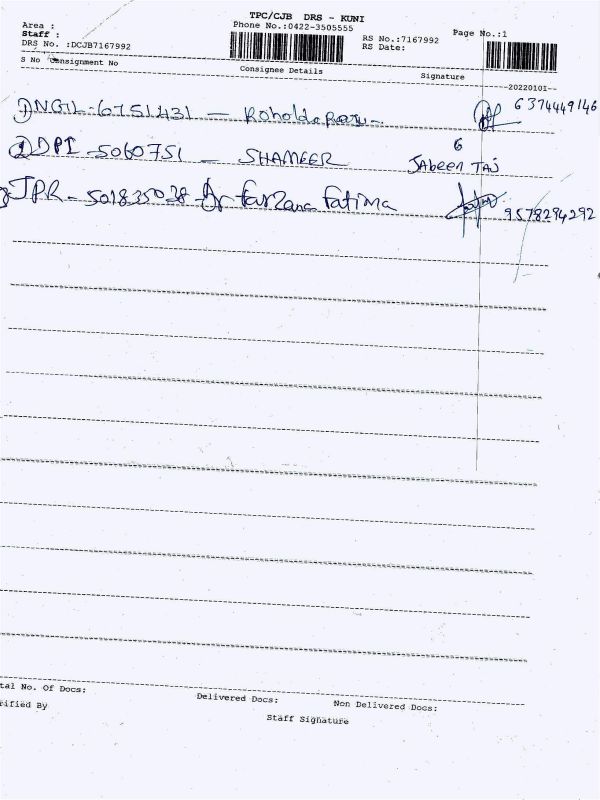 TPC/CJB DRS - KUNI
Area :
Phone No.:0422-3505555
Page No.:1
Staff :
RS No.:7167992
DRS No. :DCJB7167992
RS Date:
S No Consignment No
Consignee Details
Signature
--20220101--
1) NGTL-6751431 -
6374449146
2) DPI -5060751 - SHAMEER
6
JAbeen TAJ
3 JPR - 501835038 - Dr farzana fatima
9578294292
tal No. Of Docs:
Delivered Docs:
Non Delivered Docs:
rified By
Staff Signature